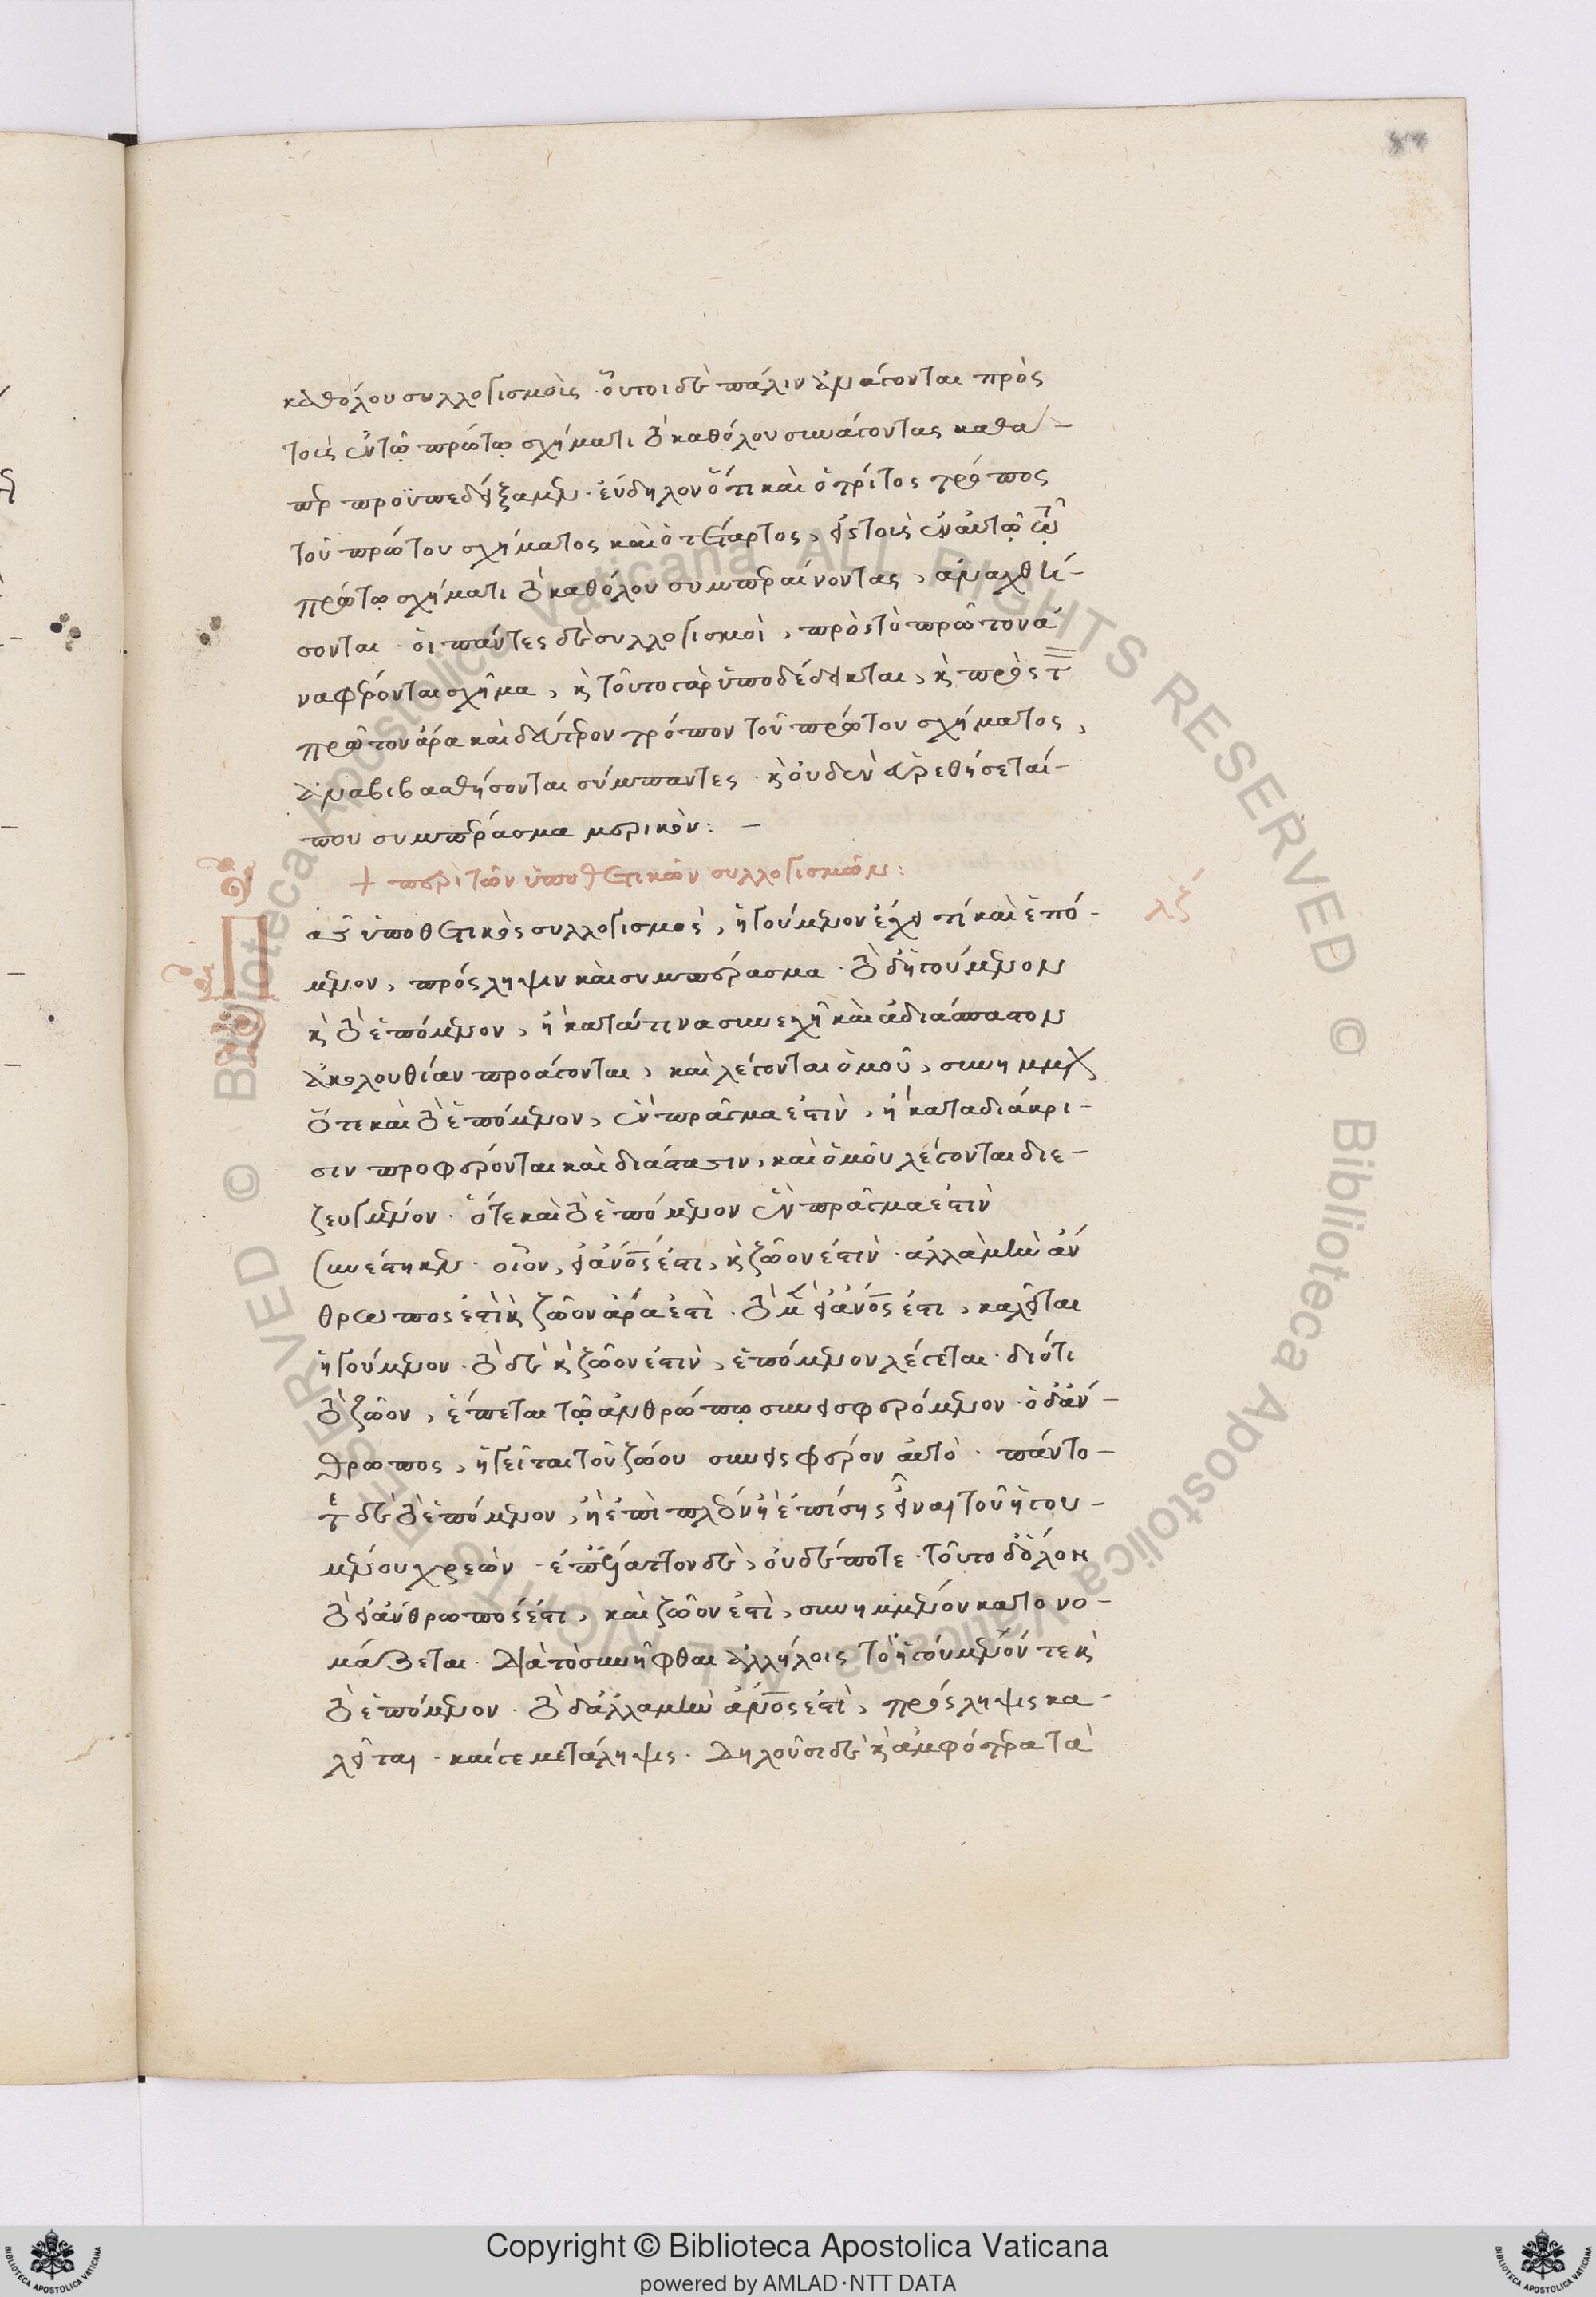 87
καθόλου συλλογισμοὺς· οὗτοι δὲ πάλιν ἀνάγονται πρὸς
τοὺς ἐν τῷ πρώτῳ σχήματι τὸ καθόλου συνάγοντας καθά-
περ προϋπεδείξαμεν· εὔδηλον ὅτι καὶ ὁ τρίτος τρόπος
τοῦ πρώτου σχήματος καὶ ὁ τέταρτος, εἰς τοὺς ἐν αὐτῷ τῷ
πρώτῳ σχήματι τὸ καθόλου συμπεραίνοντας, ἀναχθή-
σονται· οἱ πάντες δὲ συλλογισμοὶ, πρὸς τὸ πρῶτον ἀ-
ναφέρονται σχῆμα, καὶ τοῦτο γὰρ ὑποδέδεικται, καὶ πρὸς τὸν
πρῶτον ἄρα καὶ δεύτερον τρόπον τοῦ πρώτου σχήματος,
ἀναβιβασθήσονται σύμπαντες· καὶ οὐδὲν εὑρεθήσεταί-
που συμπέρασμα μερικόν: –
+ περὶ τῶν ὑποθετικῶν συλλογισμῶν:
λζ
Πᾶς ὑποθετικὸς συλλογισμὸς, ἡγούμενον ἔχει τί καὶ ἑπό-
μενον, πρόσληψιν καὶ συμπέρασμα· τὸ δ' ἡγούμενον
καὶ τὸ ἑπόμενον, ἢ κατά τινα συνεχῆ καὶ ἀδιάσπαστον
ἀκολουθίαν προάγονται, καὶ λέγονται ὁμοῦ, συνημμένον
ὅτε καὶ τὸ ἑπόμενον, ἓν πρᾶγμα ἐστὶν, ἢ κατὰ διάκρι-
σιν προφέρονται καὶ διάστασιν, καὶ ὁμοῦ λέγονται διε-
ζευγμένον· ὅτε καὶ τὸ ἑπόμενον ἓν πρᾶγμα ἐστὶν
συνέστηκεν· οἷον, εἰ ἄνος ἐστι, καὶ ζῶον ἐστὶν· ἀλλὰ μὴν ἄν
θρωπος ἐστὶ καὶ ζῶον ἄρα ἐστὶ· τὸ μὲν εἰ ἄνος ἐστι, καλεῖται
ἡγούμενον· τὸ δὲ καὶ ζῶον ἐστὶν, ἑπόμενον λέγεται· διότι
τὸ ζῶον, ἕπεται τῷ ἀνθρώπῳ συνεισφερόμενον· ὁ δ' ἄν-
θρωπος, ἡγεῖται τοῦ ζώου συνεισφέρον αὐτὸ· πάντο-
τε δὲ τὸ ἑπόμενον, ἢ ἐπὶ πλέον ἢ ἐπίσης εἶναι τοῦ ἡγου-
μένου χρεὼν· ἐπ' ἔλαττον δὲ, οὐδέποτε· τοῦτο δ' ὅλον
τὸ εἰ ἄνθρωπος ἐστι, καὶ ζῶον ἐστὶ, συνημμένον κατονο-
μάζεται· διὰ τὸ συνῆφθαι ἀλλήλοις τὸ ἡγούμενόν τε καὶ
τὸ ἑπόμενον· τὸ δ' ἀλλὰ μὴν ἄνος ἐστὶ, πρόσληψις κα-
λεῖται· καί γε μετάληψις· δηλοῦσι δὲ καὶ ἀμφότερα τὰ
Copyright © Biblioteca Apostolica Vaticana
powered by AMLAD·NTT DATA